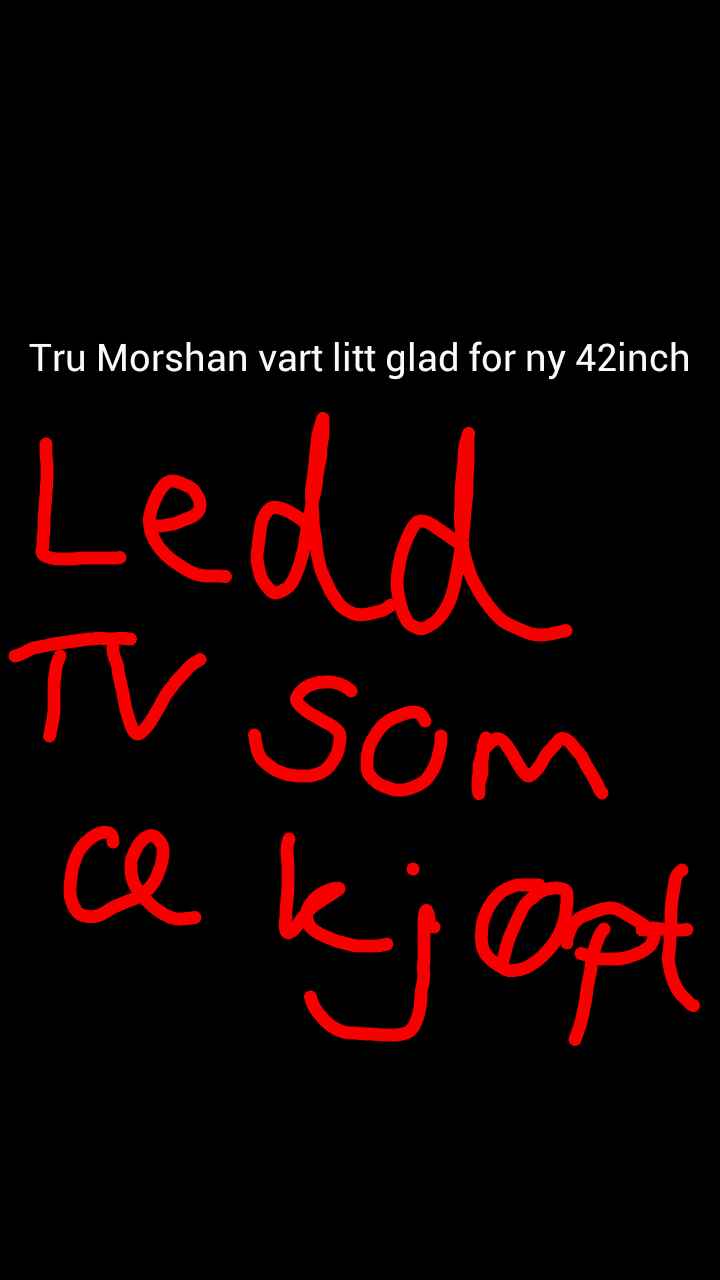 Tru Morshan vart litt glad for ny 42inch
Ledd
TV som
æ kjøpt